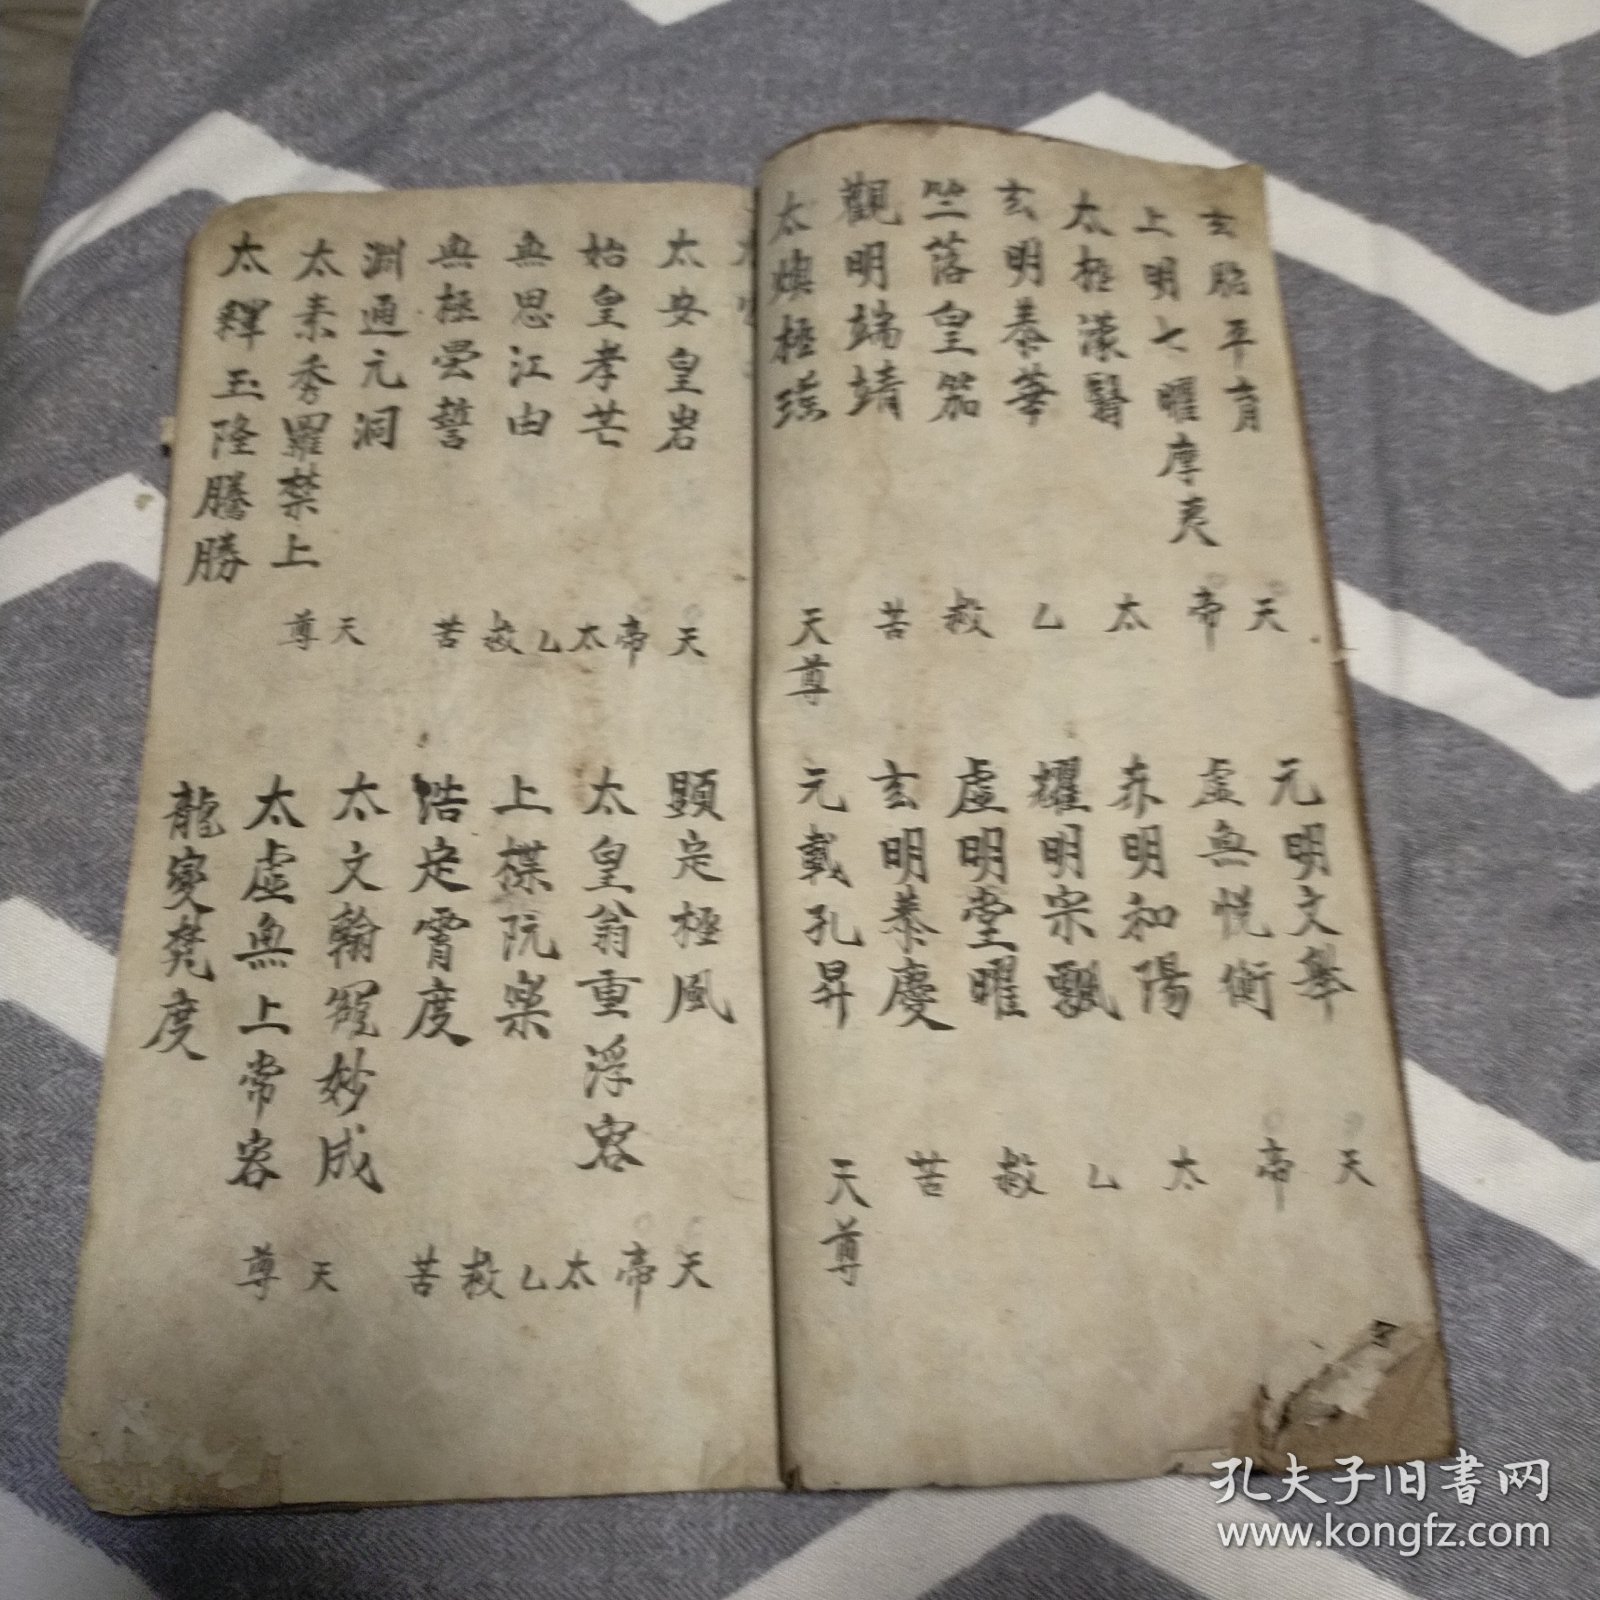 玄胎平育
上明七曜摩夷
太極濛翳
玄明恭華
竺落皇笳
觀明端靖
太煥極瑤
天帝太乙救苦
天尊
元明文舉
虛無恍衡
赤明和陽
耀明宗飄
虛明堂曜
玄明恭慶
元載孔昇
天帝太乙救苦
天尊
太安皇岩
始皇孝芒
無思江由
無極曇誓
淵通元洞
太素秀羅禁上
太釋玉隆騰勝
天帝太乙救苦
天尊
顕定極風
太皇翁重浮容
上楪阮樂
浩定霄度
太文翰寵妙成
太虛無上常容
龍變梵度
天帝太乙救苦
天尊
孔夫子旧书网
www.kongfz.com